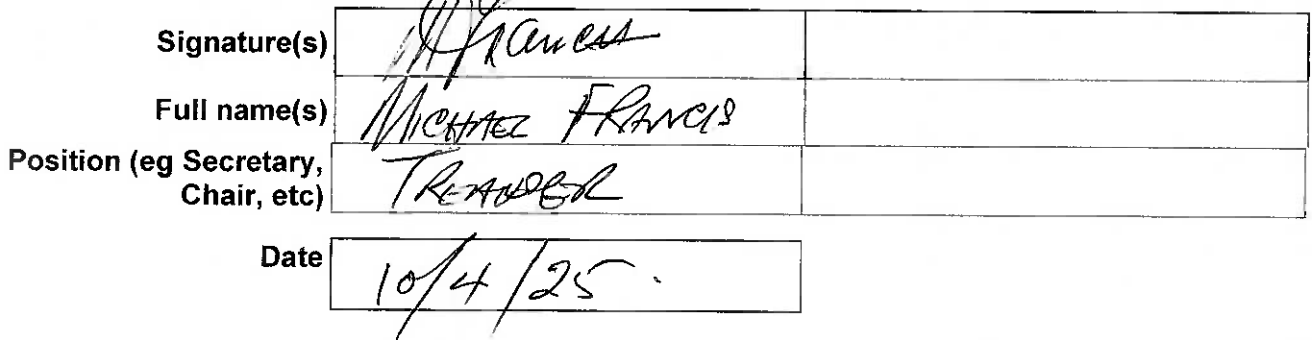 Signature(s) MFrancis
Full name(s) MICHAEL FRANCIS
Position (eg Secretary,
Chair, etc)
Date 10/4/25